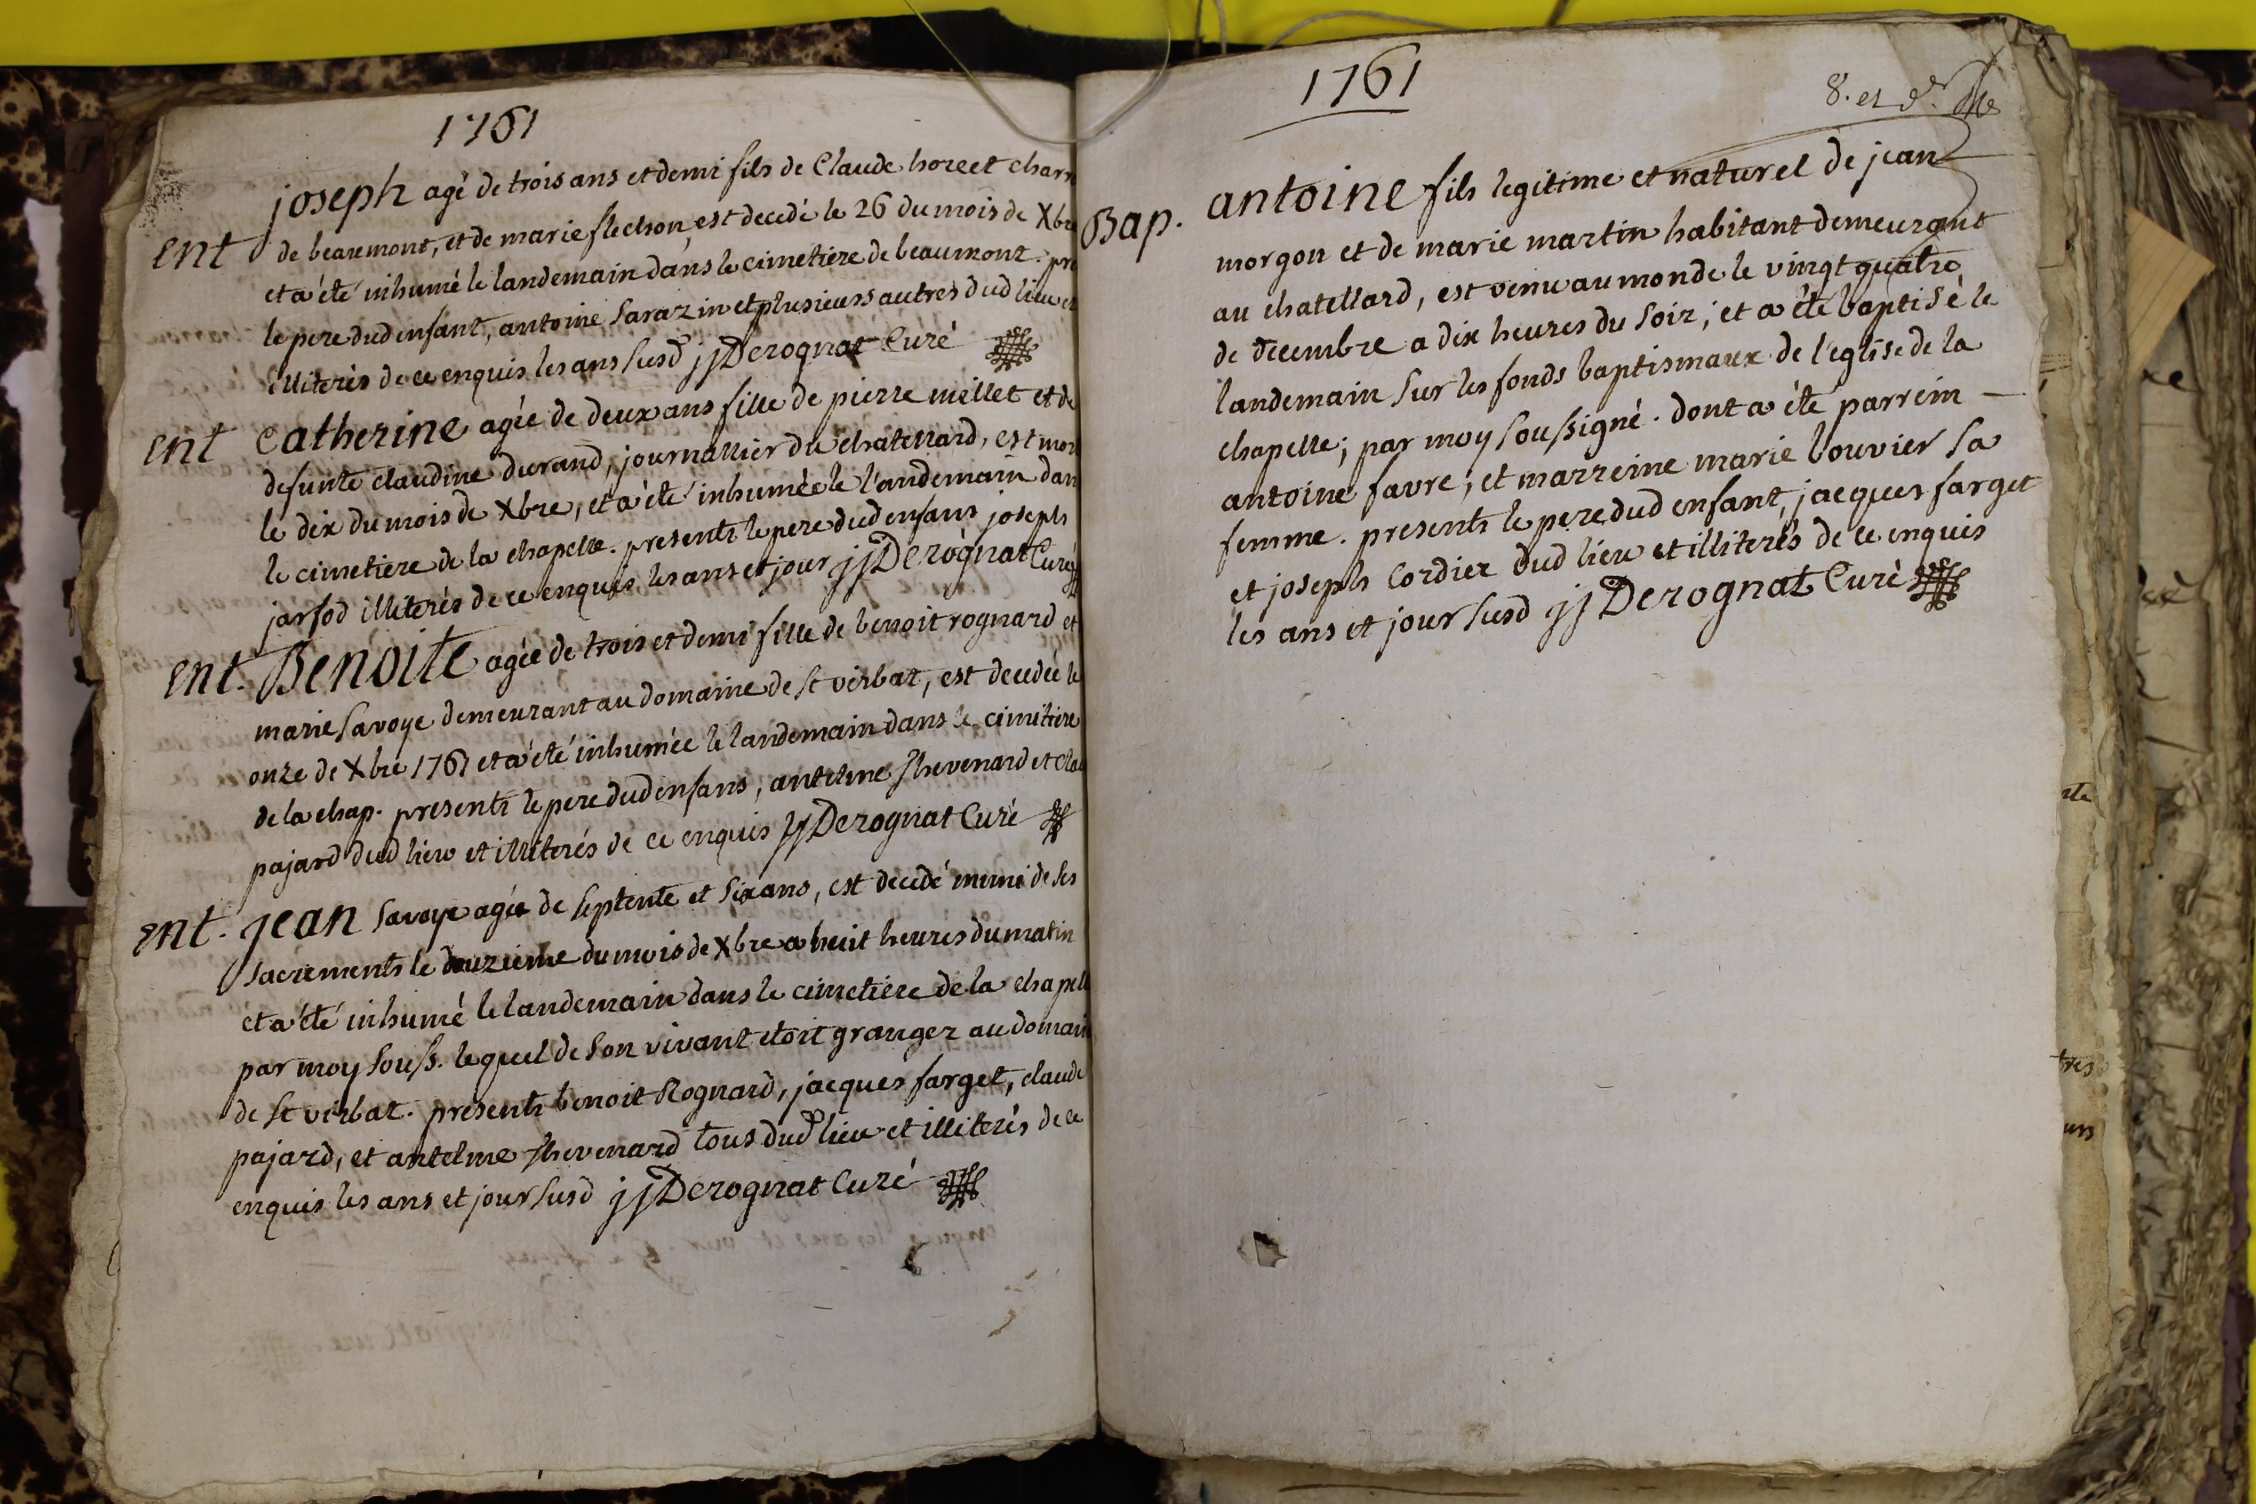 1761
joseph agé de trois ans et demi fils de Claude
ent de beaumont, et de marie est decedé le 26 du mois de Xbre
et a été inhumé le landemain dans le cimetiere de beaumont.
le pere dud enfant, antoine Sarazin et plusieurs autres dud lieu et
illiterés de ce enquis les ans susd jj Derognat Curé
ent Catherine agée de deux ans fille de pierre millet et de
defunte claudine durand, journallier du chatellard, est
le dix du mois de Xbre, et a été inhumée le landemain
le cimetiere de la chapelle. presents le pere dud enfans joseph
jarfod illiterés de ce enquis les ans et jour jj Derognat Curé
ent. Benoite agée de trois et demi fille de benoit rognard et
marie Savoye demeurant au domaine de st verbat, est decedée le
onze de Xbre 1761 et a été inhumée le landemain dans le cimitiere
de la chap. presents le pere dud enfans, antelme thevenard et
pajard dud lieu et illiterés de ce enquis jj Derognat Curé
ent. jean Savoye agée de septente et six ans, est decedé muni de ses
sacrements le douzieme du mois de Xbre a huit heures du matin
et a été inhumé le landemain dans le cimetiere de la
par moy souss. lequel de son vivant etoit granger au
de st verbat. presents benoit Rognard, jacques farget, claude
pajard, et antelme thevenard tous dud lieu et illiterés de ce
enquis les ans et jour susd jj Derognat Curé
1761
8. et
Bap. antoine fils legitime et naturel de jean
morgon et de marie martin habitant demeurant
au chatellard, est venu au monde le vingt quatre
de decembre a dix heures du soir; et a été baptisé le
landemain sur les fonds baptismaux de l'eglise de la
chapelle; par moy soussigné. dont a été parrein —
antoine favre; et marreine marie bouvier sa
femme. presents le pere dud enfant, jacques farget
et joseph Cordier dud lieu et illiterés de ce enquis
les ans et jour susd jj Derognat Curé